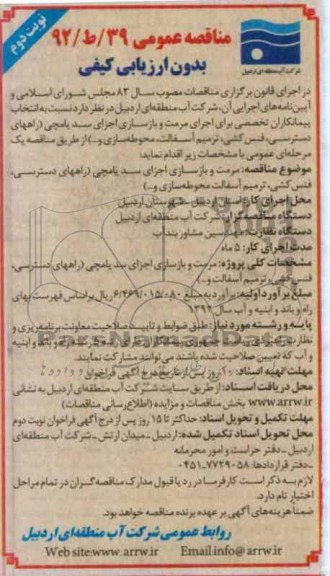 نوبت دوم
شرکت آب منطقه ای اردبیل
مناقصه عمومی ۳۹/ط/۹۲
بدون ارزیابی کیفی
در اجرای قانون برگزاری مناقصات مصوب سال ۸۳ مجلس شورای اسلامی و
آیین نامه های اجرایی آن، شرکت آب منطقه ای اردبیل در نظر دارد نسبت به انتخاب
پیمانکاران تخصصی برای اجرای مرمت و بازسازی اجزای سد یامچی (راههای
دسترسی، فنس کشی، ترمیم آسفالت، محوطه سازی و..) از طریق مناقصه یک
مرحله ای عمومی با مشخصات زیر اقدام نماید:
موضوع مناقصه: مرمت و بازسازی اجزای سد یامچی (راههای دسترسی،
فنس کشی، ترمیم آسفالت محوطه سازی و..)
محل اجرای کار: استان اردبیل - شهرستان اردبیل
دستگاه مناقصه گزار: شرکت آب منطقه ای اردبیل
دستگاه نظارت: مهندسین مشاور بندآب
مدت اجرای کار: ۵ ماه
مشخصات کلی پروژه: مرمت و بازسازی اجزای سد یامچی (راههای دسترسی،
فنس کشی، ترمیم آسفالت و..)
مبلغ برآورد اولیه: برآورد به مبلغ ۶/۴۶۹/۰۱۵/۰۸۰ ریال براساس فهرست بهای
راه و باند و ابنیه و آب سال
پایه و رشته مورد نیاز: طبق ضوابط و تایید صلاحیت معاونت برنامه ریزی و
نظارت راهبردی راه و باند و ابنیه
و آب که تعیین صلاحیت شده باشند می توانند مشارکت نمایند.
مهلت تهیه اسناد: روز پس از تاریخ درج آگهی فراخوان
محل دریافت اسناد: از طریق سایت شرکت آب منطقه ای اردبیل به نشانی
www.arrw.ir بخش مناقصات و مزایده (اطلاع رسانی مناقصات)
مهلت تکمیل و تحویل اسناد: حداکثر تا ۱۵ روز پس از درج آگهی فراخوان نوبت دوم
محل تحویل اسناد تکمیل شده: اردبیل - میدان ارتش - شرکت آب منطقه ای
اردبیل - دفتر حراست و امور محرمانه
- دفتر قراردادها: ۷۷۲۹۰۵۸-۰۴۵۱
لازم به ذکر است کارفرما در رد یا قبول مدارک مناقصه گران در تمام مراحل
اختیار تام دارد.
ضمنا هزینه های آگهی بر عهده برنده مناقصه خواهد بود.
روابط عمومی شرکت آب منطقه ای اردبیل
Web site:www.arrw.ir Email:info@arrw.ir